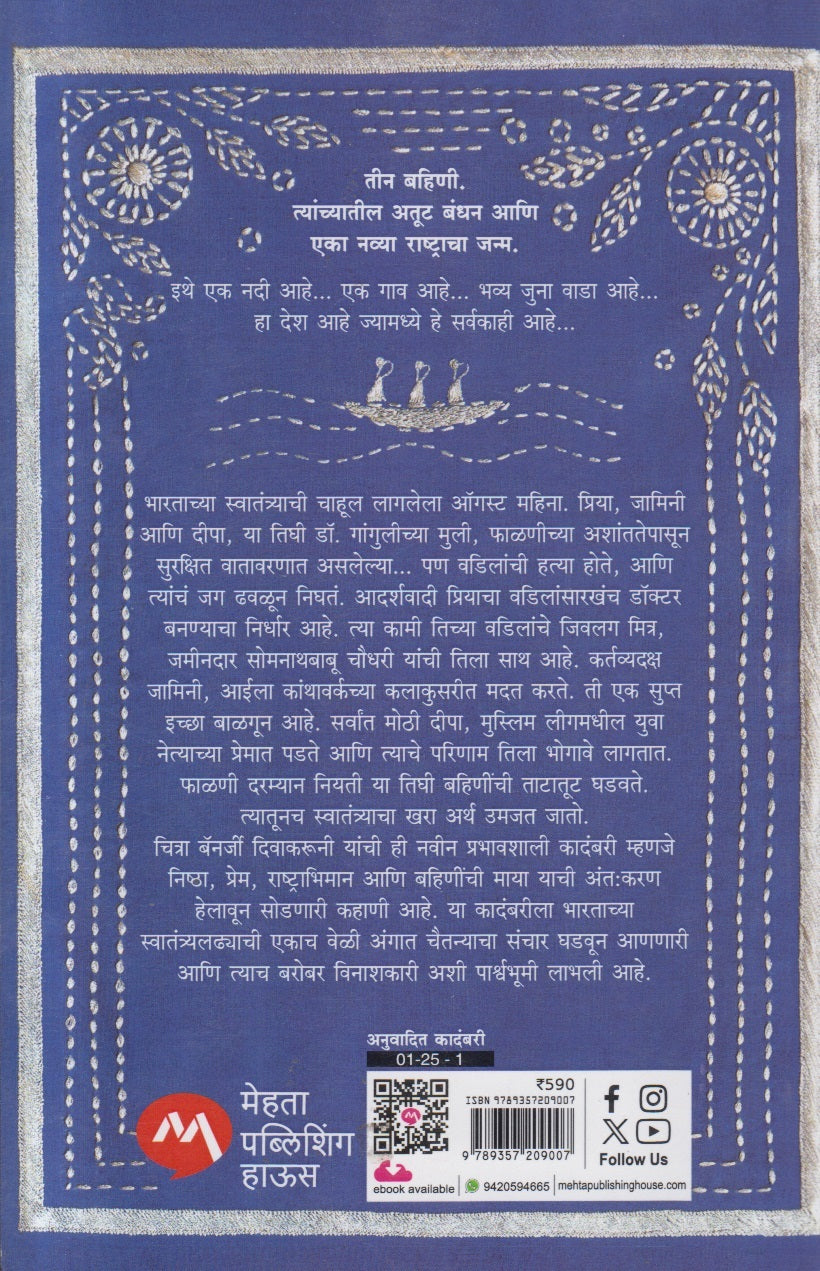 तीन बहिणी.
त्यांच्यातील अतूट बंधन आणि
एका नव्या राष्ट्राचा जन्म.
इथे एक नदी आहे... एक गाव आहे... भव्य जुना वाडा आहे...
हा देश आहे ज्यामध्ये हे सर्वकाही आहे...
भारताच्या स्वातंत्र्याची चाहूल लागलेला ऑगस्ट महिना. प्रिया, जामिनी
आणि दीपा, या तिघी डॉ. गांगुलीच्या मुली, फाळणीच्या अशांततेपासून
सुरक्षित वातावरणात असलेल्या... पण वडिलांची हत्या होते, आणि
त्यांचं जग ढवळून निघतं. आदर्शवादी प्रियाचा वडिलांसारखंच डॉक्टर
बनण्याचा निर्धार आहे. त्या कामी तिच्या वडिलांचे जिवलग मित्र,
जमीनदार सोमनाथबाबू चौधरी यांची तिला साथ आहे. कर्तव्यदक्ष
जामिनी, आईला कांथावर्कच्या कलाकुसरीत मदत करते. ती एक सुप्त
इच्छा बाळगून आहे. सर्वांत मोठी दीपा, मुस्लिम लीगमधील युवा
नेत्याच्या प्रेमात पडते आणि त्याचे परिणाम तिला भोगावे लागतात.
फाळणी दरम्यान नियती या तिघी बहिणींची ताटातूट घडवते.
त्यातूनच स्वातंत्र्याचा खरा अर्थ उमजत जातो.
चित्रा बॅनर्जी दिवाकरूनी यांची ही नवीन प्रभावशाली कादंबरी म्हणजे
निष्ठा, प्रेम, राष्ट्राभिमान आणि बहिणींची माया याची अंत:करण
हेलावून सोडणारी कहाणी आहे. या कादंबरीला भारताच्या
स्वातंत्र्यलढ्याची एकाच वेळी अंगात चैतन्याचा संचार घडवून आणणारी
आणि त्याच बरोबर विनाशकारी अशी पार्श्वभूमी लाभली आहे.
अनुवादित कादंबरी
01-25 - 1
मेहता
पब्लिशिंग
हाऊस
₹590
ISBN 9789357209007
9 789357 209007
Follow Us
ebook available
9420594665
mehtapublishinghouse.com